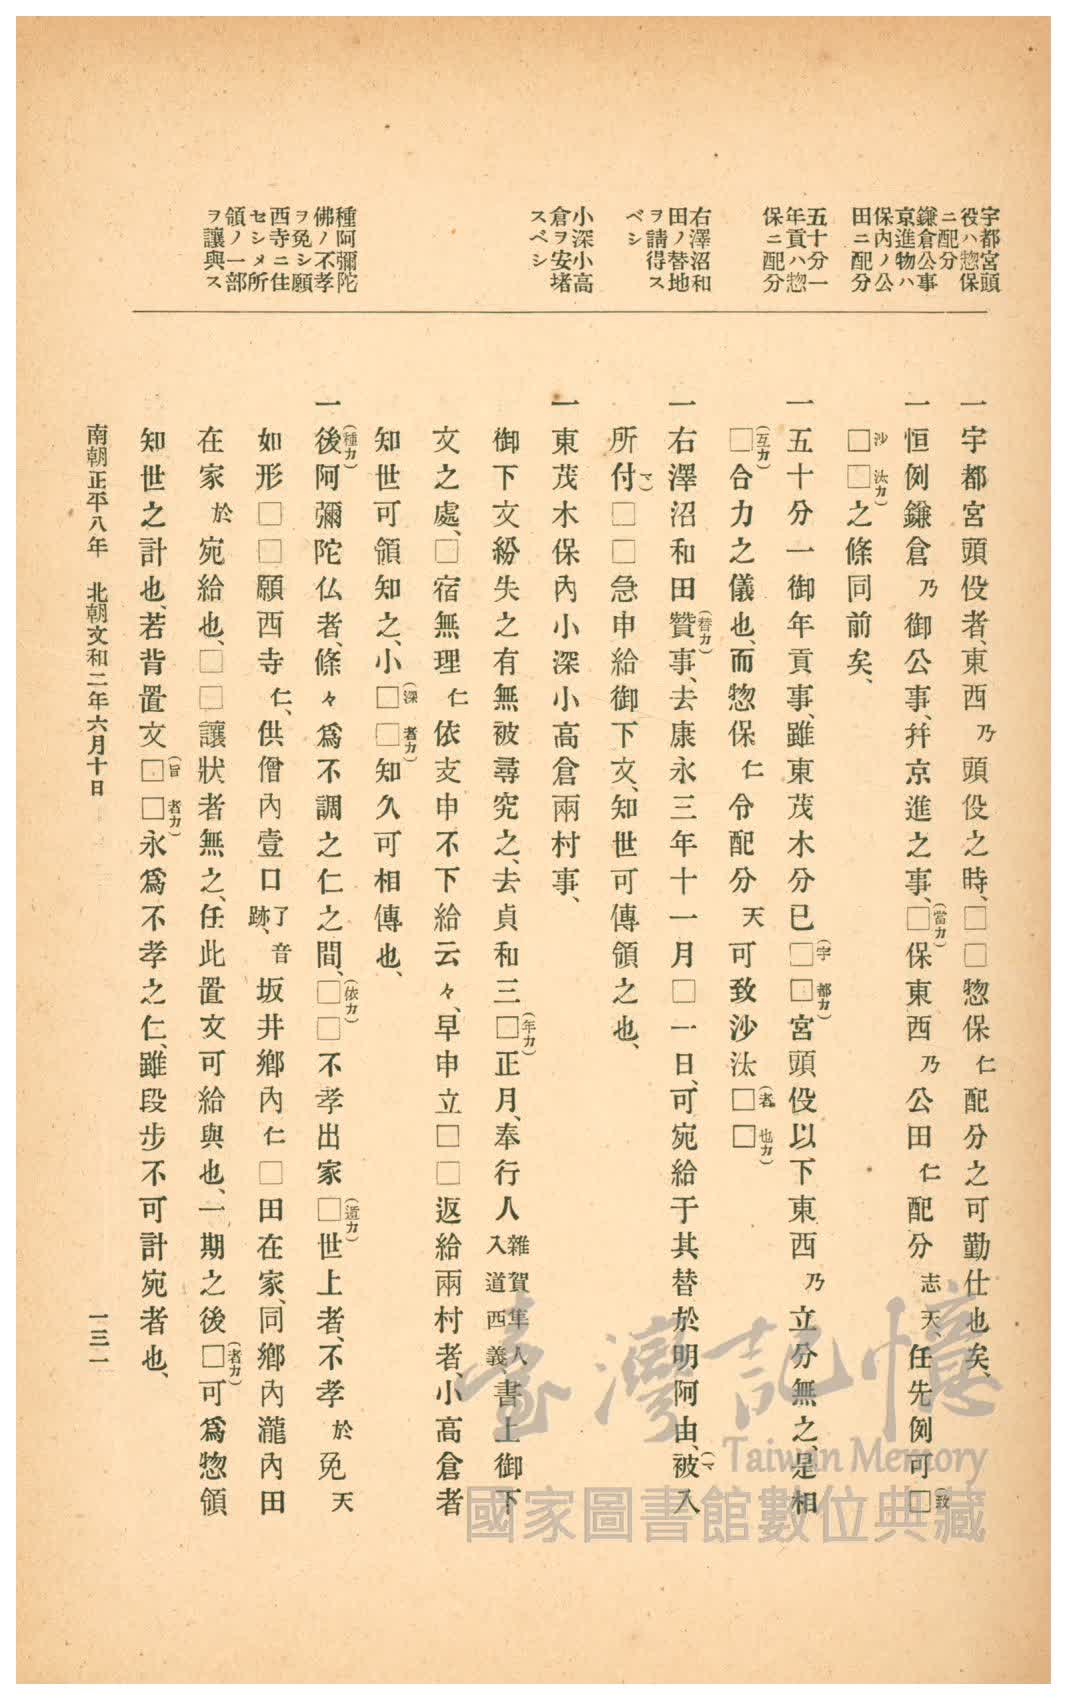 宇都宮頭
役ハ惣保
ニ配分
鎌倉公事
京進物ハ
保内ノ公
田ニ配分
五十分一
年貢ハ惣
保ニ配分
右澤沼和
田ノ替地
ヲ請得ス
ベシ
小深小高
倉ヲ安堵
スベシ
種阿彌陀
佛ノ不孝
ヲ免シ願
西寺ニ住
セシメ所
領ノ一部
ヲ讓與ス
一宇都宮頭役者、東西乃頭役之時、□□惣保仁配分之可勤仕也矣、
一恒例鎌倉乃御公事、幷京進之事、□(當カ)保東西乃公田仁配分志天、任先例可□(致
□□(沙汰カ)之條同前矣、
一五十分一御年貢事、雖東茂木分已□□(宇都カ)宮頭役以下東西乃立分無之、是相
□(互カ)合力之儀也、而惣保仁令配分天可致沙汰□□(者也カ)
一右澤沼和田贊(替カ)事、去康永三年十一月□一日、可宛給于其替於明阿由、被入(マ
所付マ)□□急申給御下文、知世可傳領之也、
一東茂木保內小深小高倉兩村事、
御下文紛失之有無被尋究之、去貞和三□(年カ)正月、奉行人雜賀隼人入道西義書上御下
文之處、□宿無理仁依支申不下給云々、早申立□□返給兩村者、小高倉者
知世可領知之、小□□(深者カ)知久可相傳也、
一後(種カ)阿彌陀仏者、條々爲不調之仁之間、□(依カ)□不孝出家□(遁カ)世上者、不孝於免天
如形□□願西寺仁、供僧內壹口了音跡、坂井鄉內仁□田在家、同鄉內瀧內田
在家於宛給也、□□讓狀者無之、任此置文可給與也、一期之後□(者カ)可爲惣領
知世之計也、若背置文□□(旨者カ)永爲不孝之仁、雖段步不可計宛者也、
南朝正平八年　北朝文和二年六月十日
一三一
臺灣記憶
Taiwan Memory
國家圖書館數位典藏